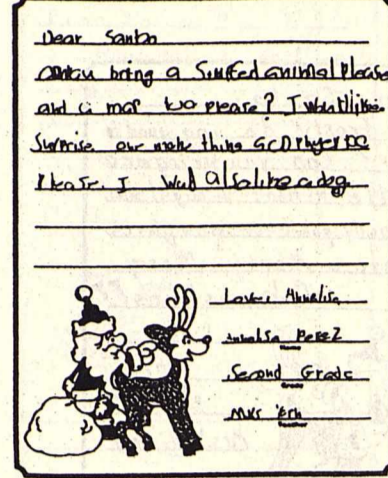 Dear Santa
bring a Stuffed animal Please
and a mar too please? I would like
Surprise. one more thing a CD Player
Please. I Would also like a dog.
Love: Annalisa
Annalisa PereZ
Name
Second Grade
Grade
Mrs
Teacher